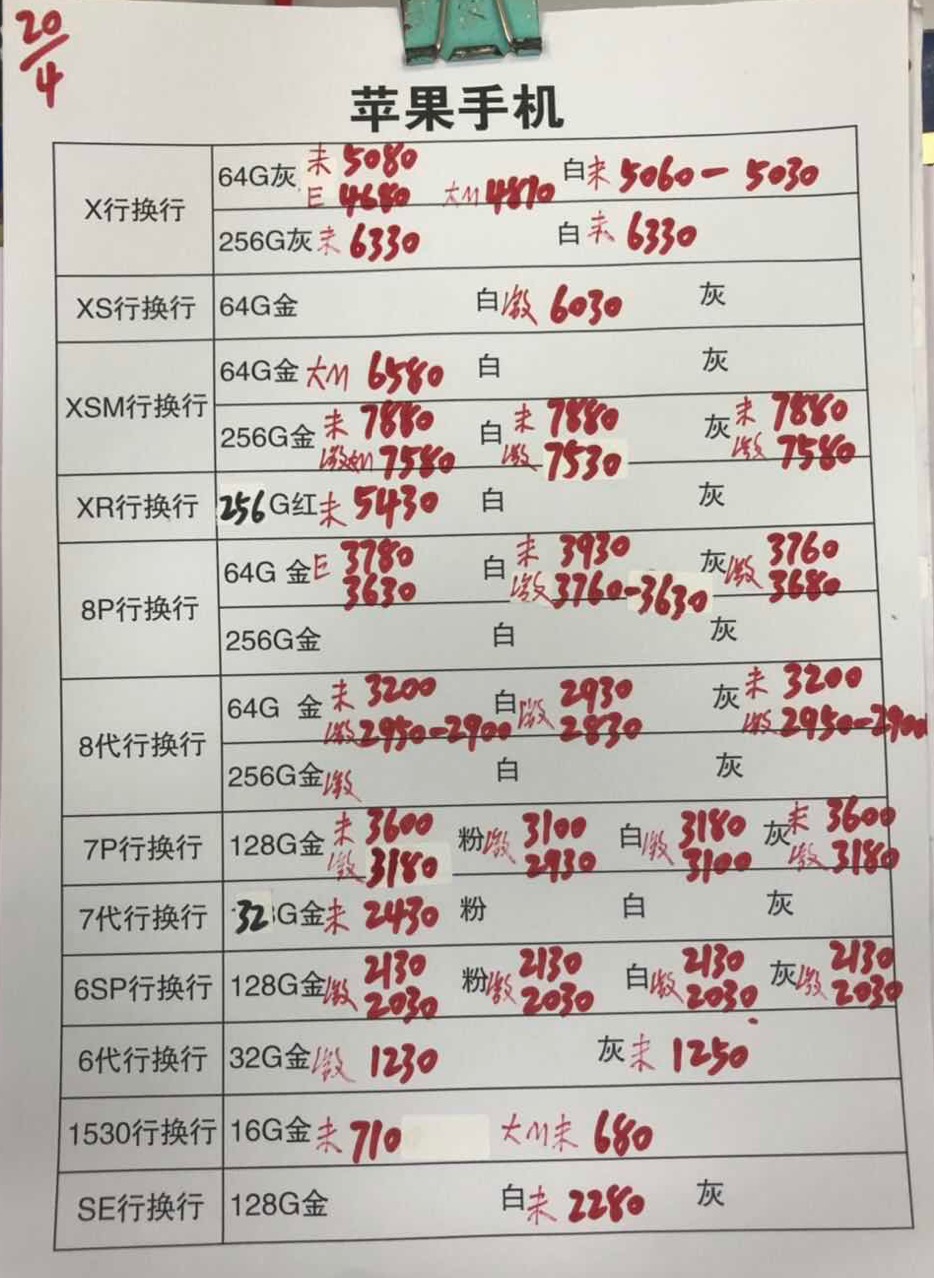 20/4
苹果手机
X行换行
64G灰 未 5080 白 未 5060-5030
E 4680 大M 4810
256G灰 未 6330 白 未 6330
XS行换行 64G金 白 激 6030 灰
XSM行换行
64G金 大M 6580 白 灰
256G金 未 7880 白 未 7880 灰 未 7880
7580 激 7530 激 7580
XR行换行 256G红 未 5430 白 灰
8P行换行
64G 金 E 3780 白 未 3930 灰 激 3760
3630 激 3760-3630 3680
256G金 白 灰
8代行换行
64G 金 未 3200 白 激 2930 灰 未 3200
激 2950-2900 2830 激 2950-2900
256G金 激 白 灰
7P行换行 128G金 未 3600 粉 激 3100 白 激 3180 灰 未 3600
激 3180 2930 3100 激 3180
7代行换行 32G金 未 2430 粉 白 灰
6SP行换行 128G金 激 2130 粉 激 2130 白 激 2130 灰 激 2130
2030 2030 2030 2030
6代行换行 32G金 激 1230 灰 未 1250
1530行换行 16G金 未 710 大M未 680
SE行换行 128G金 白 未 2280 灰